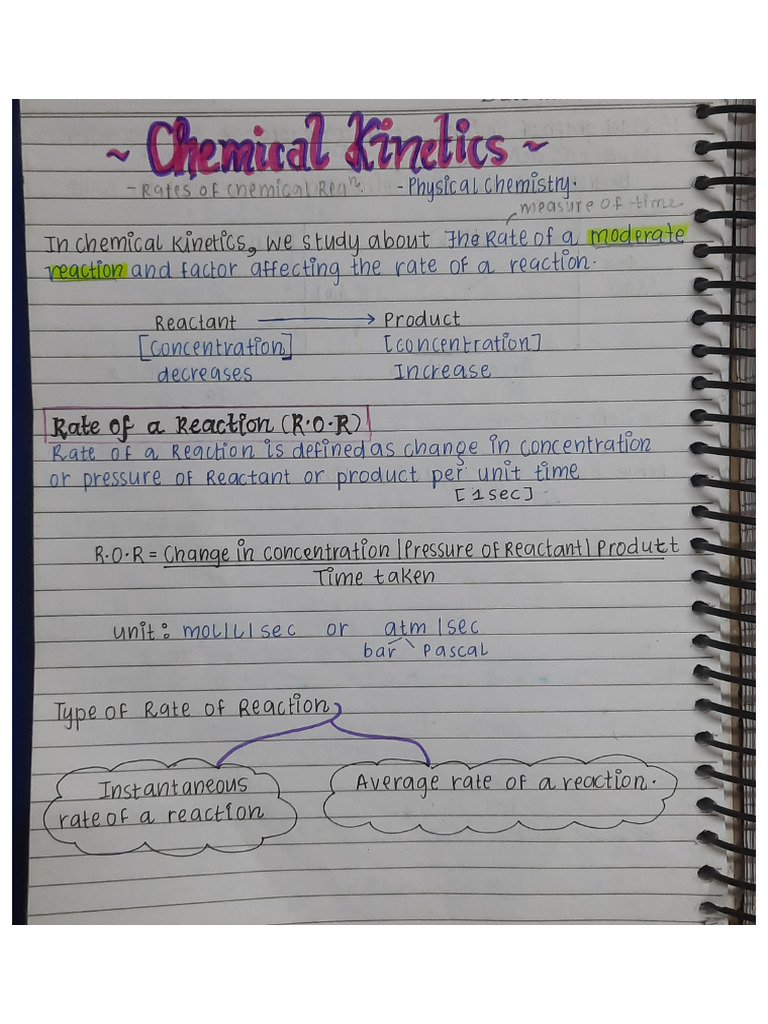 ~ Chemical Kinetics ~
- Rates of Chemical Reaⁿ. - Physical Chemistry.
measure of time
In Chemical Kinetics, we study about The Rate of a moderate
reaction and factor affecting the rate of a reaction.
Reactant → Product
[Concentration] [concentration]
decreases Increase
Rate of a Reaction (R.O.R)
Rate of a Reaction is defined as change in concentration
or pressure of Reactant or product per unit time
[1sec]
R.O.R = Change in concentration|Pressure of Reactant|Product
Time taken
unit: mol|L|sec or atm|sec
bar Pascal
Type of Rate of Reaction
Instantaneous Average rate of a reaction.
rate of a reaction